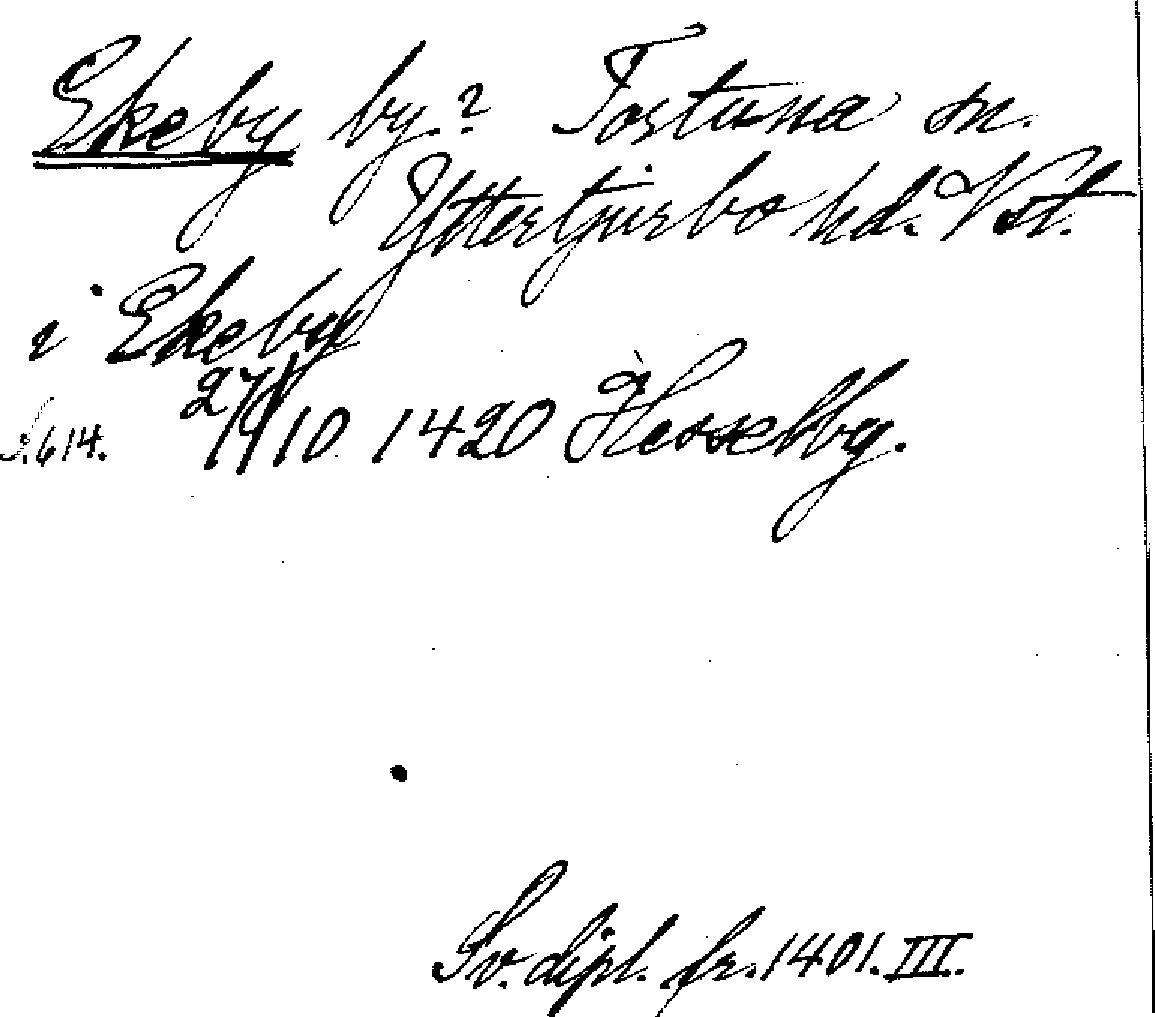 Ekeby by? Tortuna sn.
Yttertjurbo hd. Vstl.
i Ekeby
S. 614. 27/10 1420 Hesselby.
Sv. dipl. fr. 1401. III.